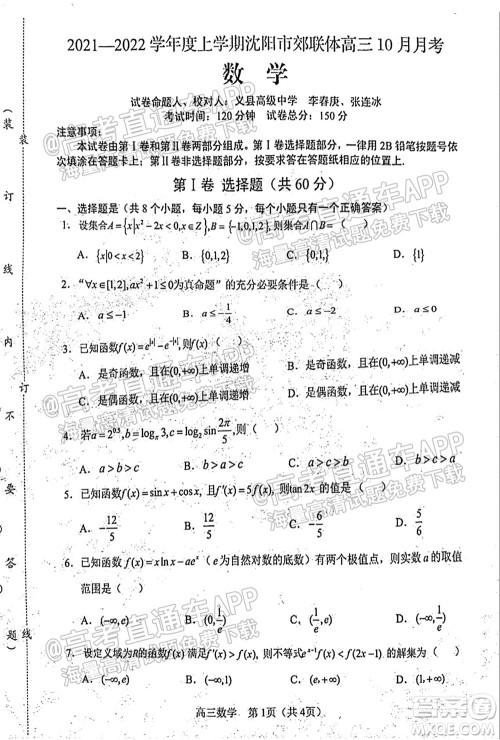 2021—2022 学年度上学期沈阳市郊联体高三 10 月月考
数 学
试卷命题人、校对人：义县高级中学 李春庚、张连冰
考试时间：120 分钟 试卷总分：150 分
注意事项：
本试卷由第Ⅰ卷和第Ⅱ卷两部分组成。第Ⅰ卷选择题部分，一律用 2B 铅笔按题号
依次填涂在答题卡上；第Ⅱ卷非选择题部分，按要求答在答题纸相应位置上.
第Ⅰ卷 选择题（共 60 分）
一、选择题（共 8 个小题，每小题 5 分，每小题只有一个正确答案）
1. 设集合A={x|x²−2x<0,x∈Z},B={−1,0,1,2},则集合A∩B=（ ）
A. {x|0<x<2} B. {0,1,2} C. {0,1} D. {1}
2. “∀x∈[1,2],ax²+1≤0为真命题”的充分必要条件是（ ）
A. a≤−1 B. a≤−1/4 C. a≤−2 D. a≤0
3. 已知函数f(x)=e^|x|−e^−|x|,则f(x)（ ）
A. 是奇函数，且在(0,+∞)上单调递增 B. 是奇函数，且在(0,+∞)上单调递减
C. 是偶函数，且在(0,+∞)上单调递增 D. 是偶函数，且在(0,+∞)上单调递减
4. 若a=2^0.5,b=log_π 3,c=log_2 sin 2π/5,则（ ）
A. a>b>c B. b>a>c C. c>a>b D. b>c>a
5. 已知函数f(x)=sinx+cosx,且f′(x)=5f(x),则tan2x的值是（ ）
A. −12/5 B. 12/5 C. −4/3 D. 4/3
6. 已知函数f(x)=xlnx−ae^x（e为自然对数的底数）有两个极值点，则实数a的取值
范围是（ ）
A. (−∞,e) B. (0,e) C. (1/e,e) D. (0,1/e)
7. 设定义域为R的函数f(x)满足f′(x)>f(x)，则不等式e^x−1 f(x)<f(2x−1)的解集为（ ）
A. (−∞,e) B. (−∞,1) C. (e,+∞) D. (1,+∞)
高三数学 第1页（共4页）
（装 订 线 内 不 要 答 题）
装 订 线
@高考直通车APP
海量高清试题免费下载
@高考直通车APP
海量高清试题免费下载
@高考直通车APP
海量高清试题免费下载
@高考直通车APP
海量高清试题免费下载